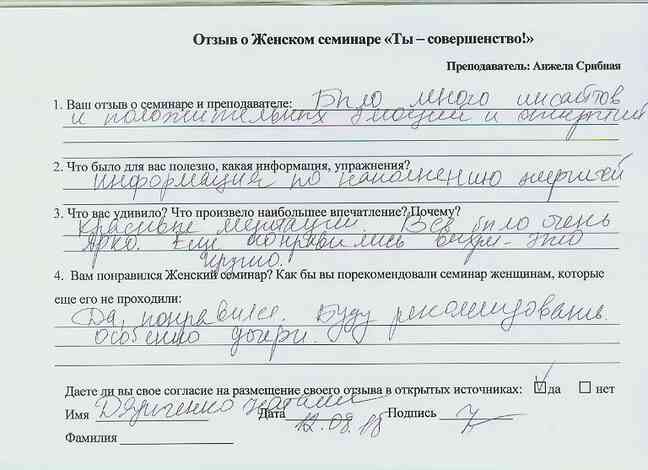 Отзыв о Женском семинаре «Ты – совершенство!»
Преподаватель: Анжела Срибная
1. Ваш отзыв о семинаре и преподавателе: Было много инсайтов
и положительных эмоций и открытий
2. Что было для вас полезно, какая информация, упражнения?
информация по наполнению энергией
3. Что вас удивило? Что произвело наибольшее впечатление? Почему?
Красивые медитации. Всё было очень
ярко. Еще понравились вихри - это
чудно.
4. Вам понравился Женский семинар? Как бы вы порекомендовали семинар женщинам, которые
еще его не проходили:
Да, понравился. Буду рекомендовать.
особенно дочери.
Даете ли вы свое согласие на размещение своего отзыва в открытых источниках: ☑ да ☐ нет
Имя Наталия Дата 12.08.18 Подпись
Фамилия